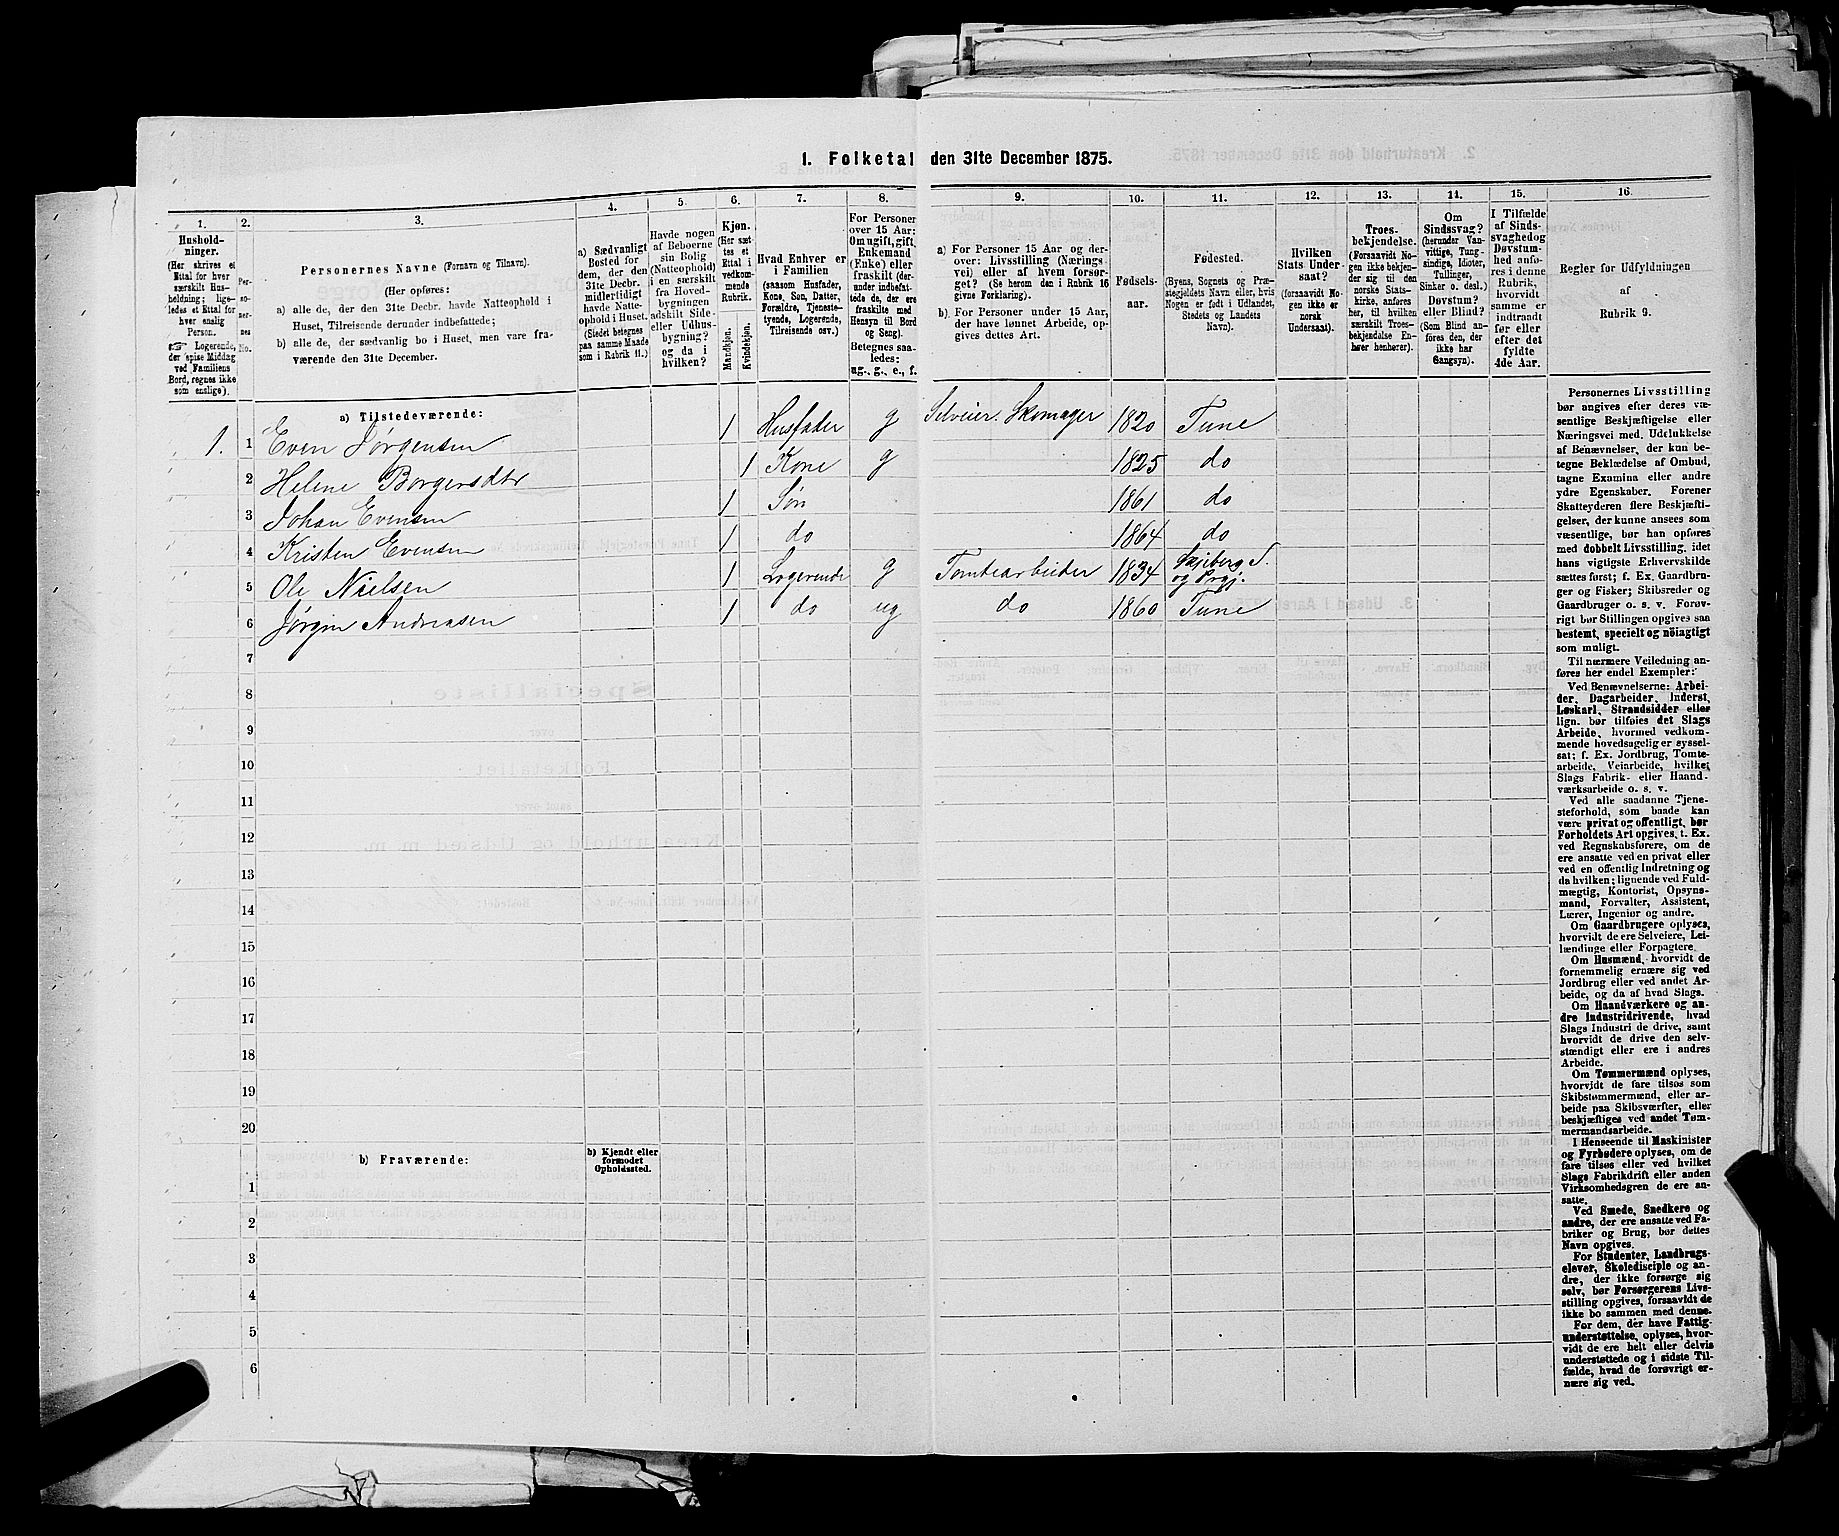 1. Folketal den 31te December 1875.
1.
Hushold-
ninger.
(Her skrives et
Ettal for hver
særskilt Hus-
holdning; lige-
ledes et Ettal for
hver enslig
Person.
☞ Logerende,
der spise Middag
ved Familiens
Bord, regnes ikke
som enslige).
2.
Per-
so-
ner-
nes
No.
3.
Personernes Navne (Fornavn og Tilnavn).
(Her opføres:
a) alle de, der den 31te Decbr. havde Natteophold i
Huset, Tilreisende derunder indbefattede;
b) alle de, der sædvanlig bo i Huset, men vare fra-
værende den 31te December.
4.
a) Sædvanligt
Bosted for
dem, der den
31te Decbr.
midlertidigt
havde Natte-
ophold i Huset.
(Stedet betegnes
paa samme Maade
som i Rubrik 11.)
5.
Havde nogen
af Beboerne
sin Bolig
(Natteophold)
i en særskilt
fra Hoved-
bygningen
adskilt Side-
eller Udhus-
bygning?
og da i
hvilken?
6.
Kjøn.
(Her sæt-
tes et
Ettal i
vedkom-
mende
Rubrik.
Mandkjøn.
Kvindekjøn.
7.
Hvad Enhver er
i Familien
(saasom Husfader,
Kone, Søn, Datter,
Forældre, Tjeneste-
tyende, Logerende,
Tilreisende osv.)
8.
For Personer
over 15 Aar:
Om ugift, gift,
Enkemand
(Enke) eller
fraskilt (der-
under indbefat-
tede de, der ere
fraskilte med
Hensyn til Bord
og Seng).
Betegnes saa-
ledes:
ug., g., e., f.
9.
a) For Personer 15 Aar og der-
over: Livsstilling (Nærings-
vei) eller af hvem forsør-
get? (Se herom den i Rubrik 16
givne Forklaring).
b) For Personer under 15 Aar,
der have lønnet Arbeide, op-
gives dettes Art.
10.
Fødsels-
aar.
11.
Fødested.
(Byens, Sognets og Præ-
stegjeldets Navn eller, hvis
Nogen er født i Udlandet,
Stedets og Landets
Navn).
12.
Hvilken
Stats Under-
saat?
(forsaavidt No-
gen ikke er
norsk
Undersaat).
13.
Troes-
bekjendelse.
(Forsaavidt No-
gen ikke bekjen-
der sig til den
norske Stats-
kirke, anføres
her, til hvilken
særskilt Troes-
bekjendelse En-
hver henhører).
14.
Om
Sindssvag?
(herunder Van-
vittige, Tung-
sindige, Idioter,
Tullinger,
Sinker o. desl.)
Døvstum?
eller Blind?
(Som Blind an-
føres den, der
ikke har
Gangsyn).
15.
I Tilfælde
af Sinds-
svaghed og
Døvstum-
hed anfø-
res i denne
Rubrik,
hvorvidt
samme er
indtraadt
før eller
efter det
fyldte
4de Aar.
16.
Regler for Udfyldningen
af
Rubrik 9.
a) Tilstedeværende:
1. 1 Even Jørgensen 1 Husfader g Selveier. Skomager 1820 Tune
2 Helene Borgersdtr 1 Kone g 1825 do
3 Johan Evensen 1 Søn 1861 do
4 Kristen Evensen 1 do 1864 do
5 Ole Nielsen 1 Logerende g Tomtearbeider 1834 Skjeberg S.
og Prgj.
6 Jørgen Andreasen 1 do ug do 1860 Tune
7
8
9
10
11
12
13
14
15
16
17
18
19
20
b) Fraværende:
b) Kjendt eller
formodet
Opholdssted.
1
2
3
4
5
6
Personernes Livsstilling
bør angives efter deres væ-
sentlige Beskjæftigelse eller
Næringsvei med Udelukkelse
af Benævnelser, der kun be-
tegne Beklædelse af Ombud,
tagne Examina eller andre
ydre Egenskaber. Forener
Skatteyderen flere Beskjæfti-
gelser, der kunne ansees som
væsentlige, bør han opføres
med dobbelt Livsstilling, idet
hans vigtigste Erhvervskilde
sættes først; f. Ex. Gaardbru-
ger og Fisker; Skibsreder og
Gaardbruger o. s. v. Forøv-
rigt bør Stillingen opgives saa
bestemt, specielt og nøiagtigt
som muligt.
Til nærmere Veiledning an-
føres her endel Exempler:
Ved Benævnelserne: Arbei-
der, Dagarbeider, Inderst,
Løskarl, Strandsidder eller
lign. bør tilføies det Slags
Arbeide, hvormed vedkom-
mende hovedsagelig er syssel-
sat; f. Ex. Jordbrug, Tomte-
arbeide, Veiarbeide, hvilket
Slags Fabrik- eller Haand-
værksarbeide o. s. v.
Ved alle saadanne Tjene-
steforhold, som baade kan
være privat og offentligt, bør
Forholdets Art opgives, t. Ex.
ved Regnskabsførere, om de
ere ansatte ved en privat eller
ved en offentlig Indretning og
da hvilken; lignende ved Fuld-
mægtig, Kontorist, Opsyns-
mand, Forvalter, Assistent,
Lærer, Ingeniør og andre.
Om Gaardbrugere oplyses,
hvorvidt de ere Selveiere, Lei-
lændinge eller Forpagtere.
Om Husmænd, hvorvidt de
fornemmelig ernære sig ved
Jordbrug eller ved andet Ar-
beide, og da af hvad Slags.
Om Haandværkere og an-
dre Industridrivende, hvad
Slags Industri de drive, samt
hvorvidt de drive den selv-
stændigt eller ere i andres
Arbeide.
Om Tømmermænd oplyses,
hvorvidt de fare tilsøs som
Skibstømmermænd, eller ar-
beide paa Skibsværfter, eller
beskjæftiges ved andet Tøm-
mermandsarbeide.
I Henseende til Maskinister
og Fyrbødere oplyses, om de
fare tilsøs eller ved hvilket
Slags Fabrikdrift eller anden
Virksomhedsgren de ere an-
satte.
Ved Smede, Snedkere og
andre, der ere ansatte ved Fa-
briker og Brug, bør dettes
Navn opgives.
For Studenter, Landbrugs-
elever, Skoledisciple og an-
dre, der ikke forsørge sig
selv, bør Forsørgerens Livs-
stilling opgives, forsaavidt de
ikke bo sammen med denne.
For dem, der have Fattig-
understøttelse, oplyses, hvor-
vidt de ere helt eller delvis
understøttede og i sidste Til-
fælde, hvad de forøvrigt er-
nære sig ved.